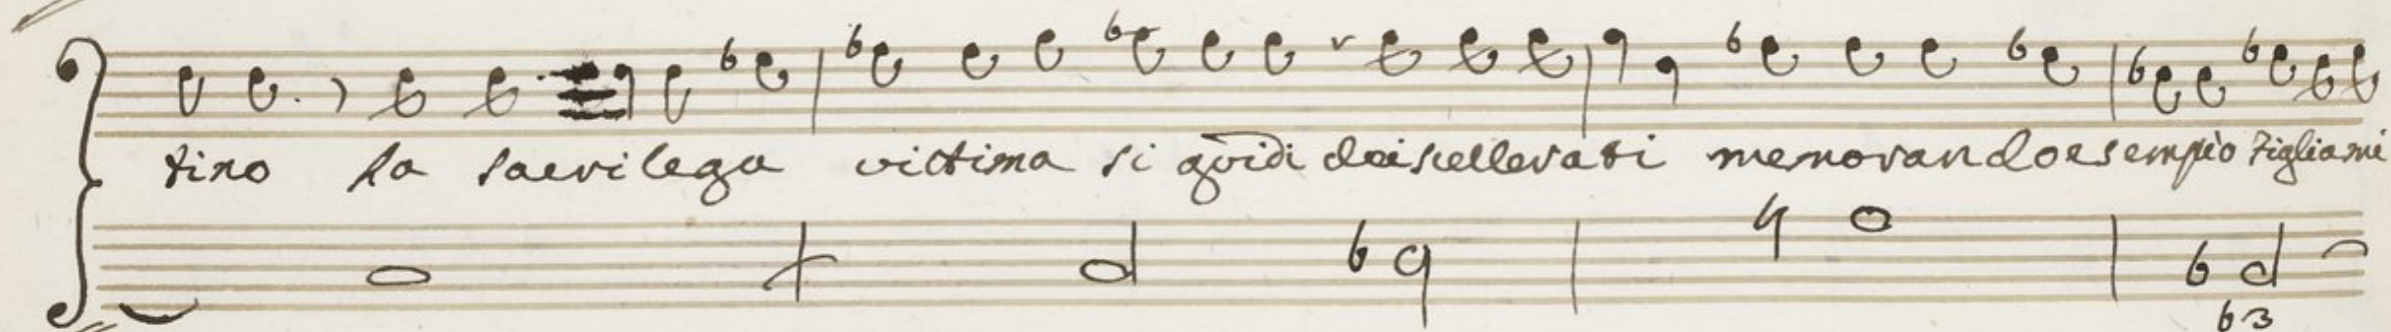 tino la sacrilega victima si guidi dei scellerati memorando esempio Figlia mi
6 3